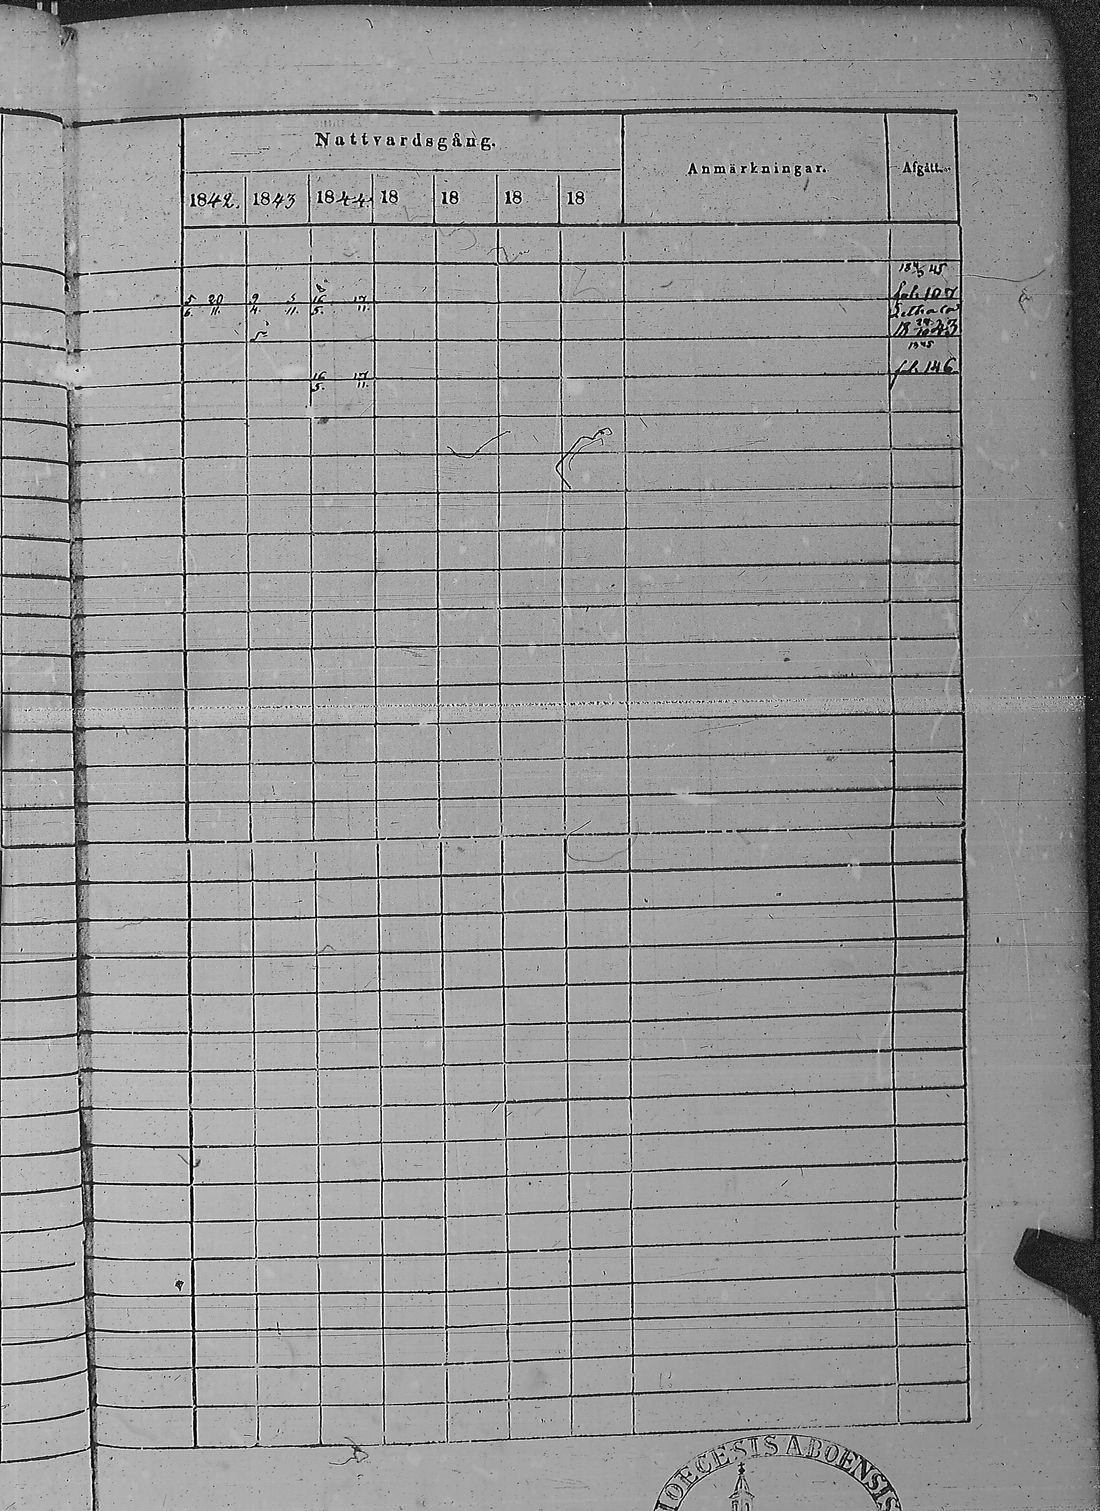 Nattvardsgång.
Anmärkningar.
Afgått.
1842. 1843 1844. 18 18 18 18
45
fol. 107
5 20 9 5 16 17
6. 11. 4. 11. 5. 11.
1843
1845
fol. 146
16 17
5. 11.
DIOECESIS ABOENSIS